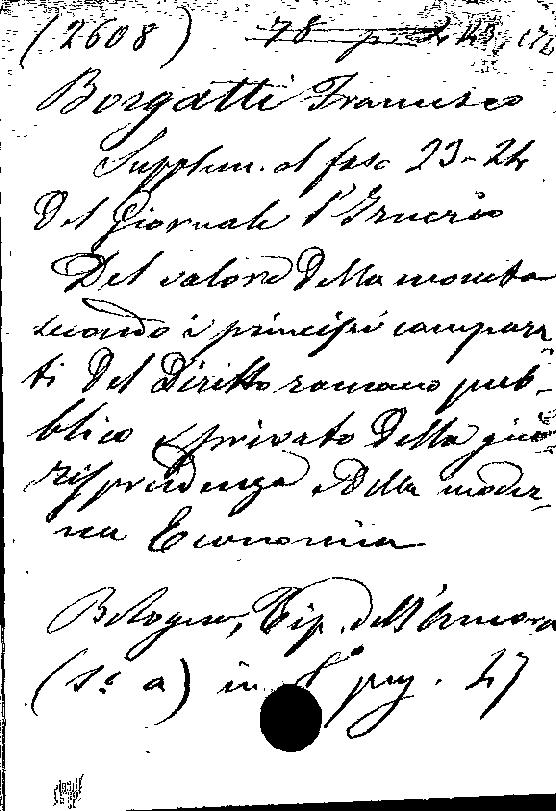 (2608) 78
Borgatti Francesco
Supplem. al fasc 23-24
Del Giornale l'Irnerio
Del valore Della moneta
secondo i principi compara-
ti Del Diritto romano pub-
blico e privato Della giu-
risprudenza e Della moder-
na Economia
Bologna, Tip. dell'Ancora
(s. a) in 8° pag. 27